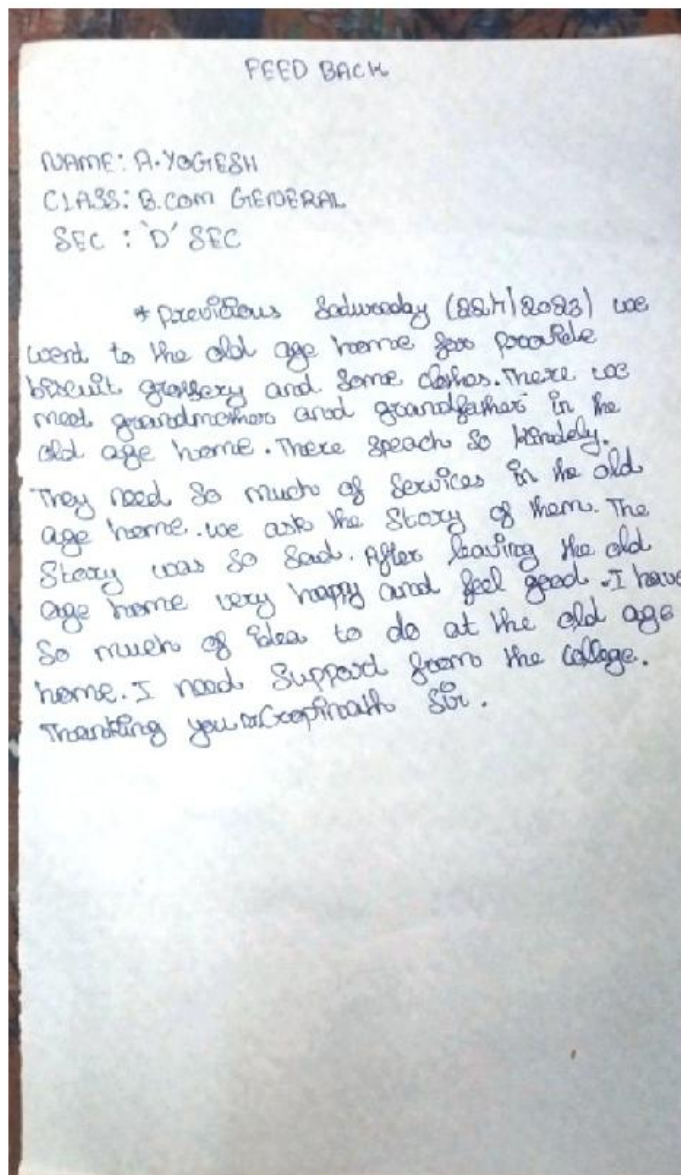 FEED BACK
NAME: A.YOGESH
CLASS: B.COM GENERAL
SEC : 'D' SEC
* previous Saduraday (22/7/2023) we
went to the old age home for provide
biscuit grossery and some clothes. There we
meet grandmother and grandfather in the
old age home. There speach so kindely.
They need so much of services in the old
age home. we ask the story of them. The
story was so sad. After leaving the old
age home very happy and feel good. I have
so much of idea to do at the old age
home. I need support from the college.
Thanking you Gopinath sir.